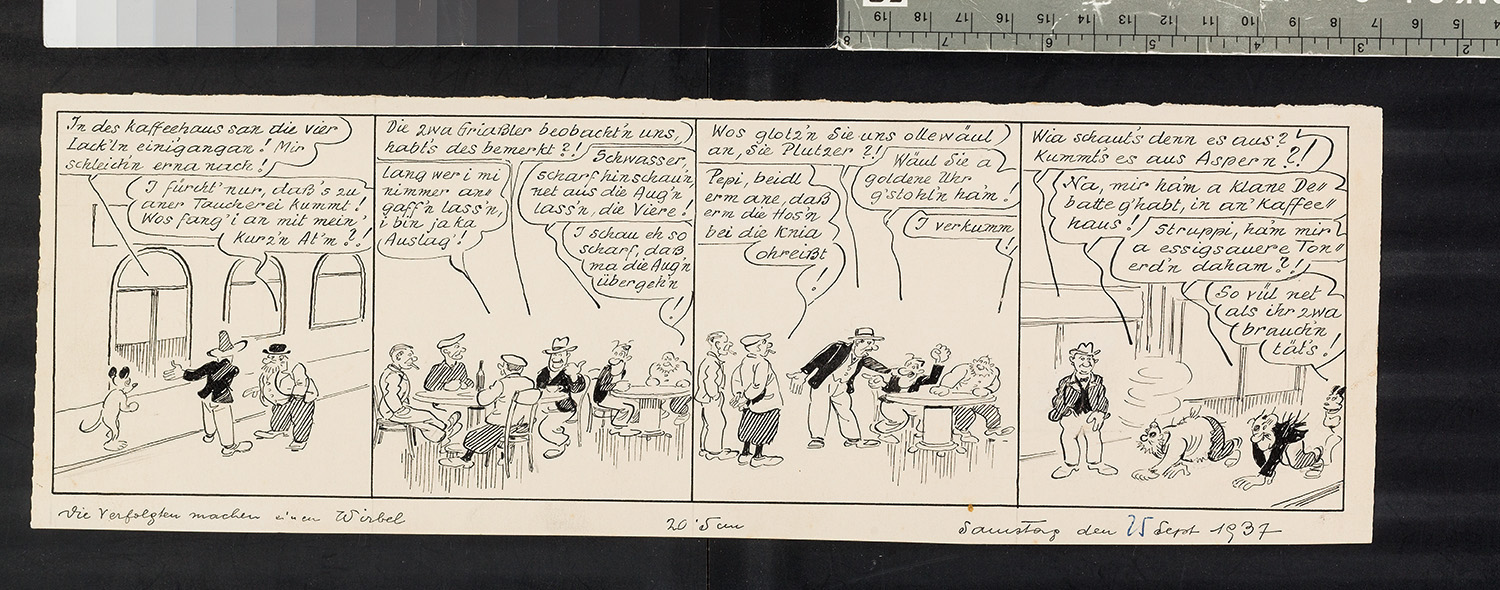 In des kaffeehaus san die vier
Lack'ln einigangan! Mir
schleich'n erna nach!
I fürcht' nur, daß's zu
aner Taucherei kummt!
Wos fang' i an mit mein'
kurz'n At'm?!
Die zwa Griaßler beobacht'n uns,
habt's des bemerkt?!
Lang wer i mi
nimmer an=
gaff'n lass'n,
i bin ja ka
Auslag'!
Schwasser,
scharf hinschau'n,
net aus die Aug'n
lass'n, die Viere!
I schau eh so
scharf, daß
ma die Aug'n
übergeh'n
!
Wos glotz'n Sie uns ollewäul
an, Sie Plutzer?!
Pepi, beidl
erm ane, daß
erm die Hos'n
bei die Knia
ohreißt
!
Wäul Sie a
goldene Uhr
g'stohl'n ha'm!
I verkumm
!
Wia schaut's denn es aus?
Kummt's es aus Aspern?!
Na, mir ha'm a klane De=
batte g'habt, in an' Kaffee=
haus!
Struppi, ha'm mir
a essigsauere Ton=
erd'n daham?!
So vül net
als ihr zwa
brauch'n
tät's!
Die Verfolgten machen einen Wirbel
20˙5 cm
Samstag den 25 Sept 1937
19 18 17 16 15 14 13 12 11 10 9 8 7 6 5 4
8 7 6 5 4 3 2